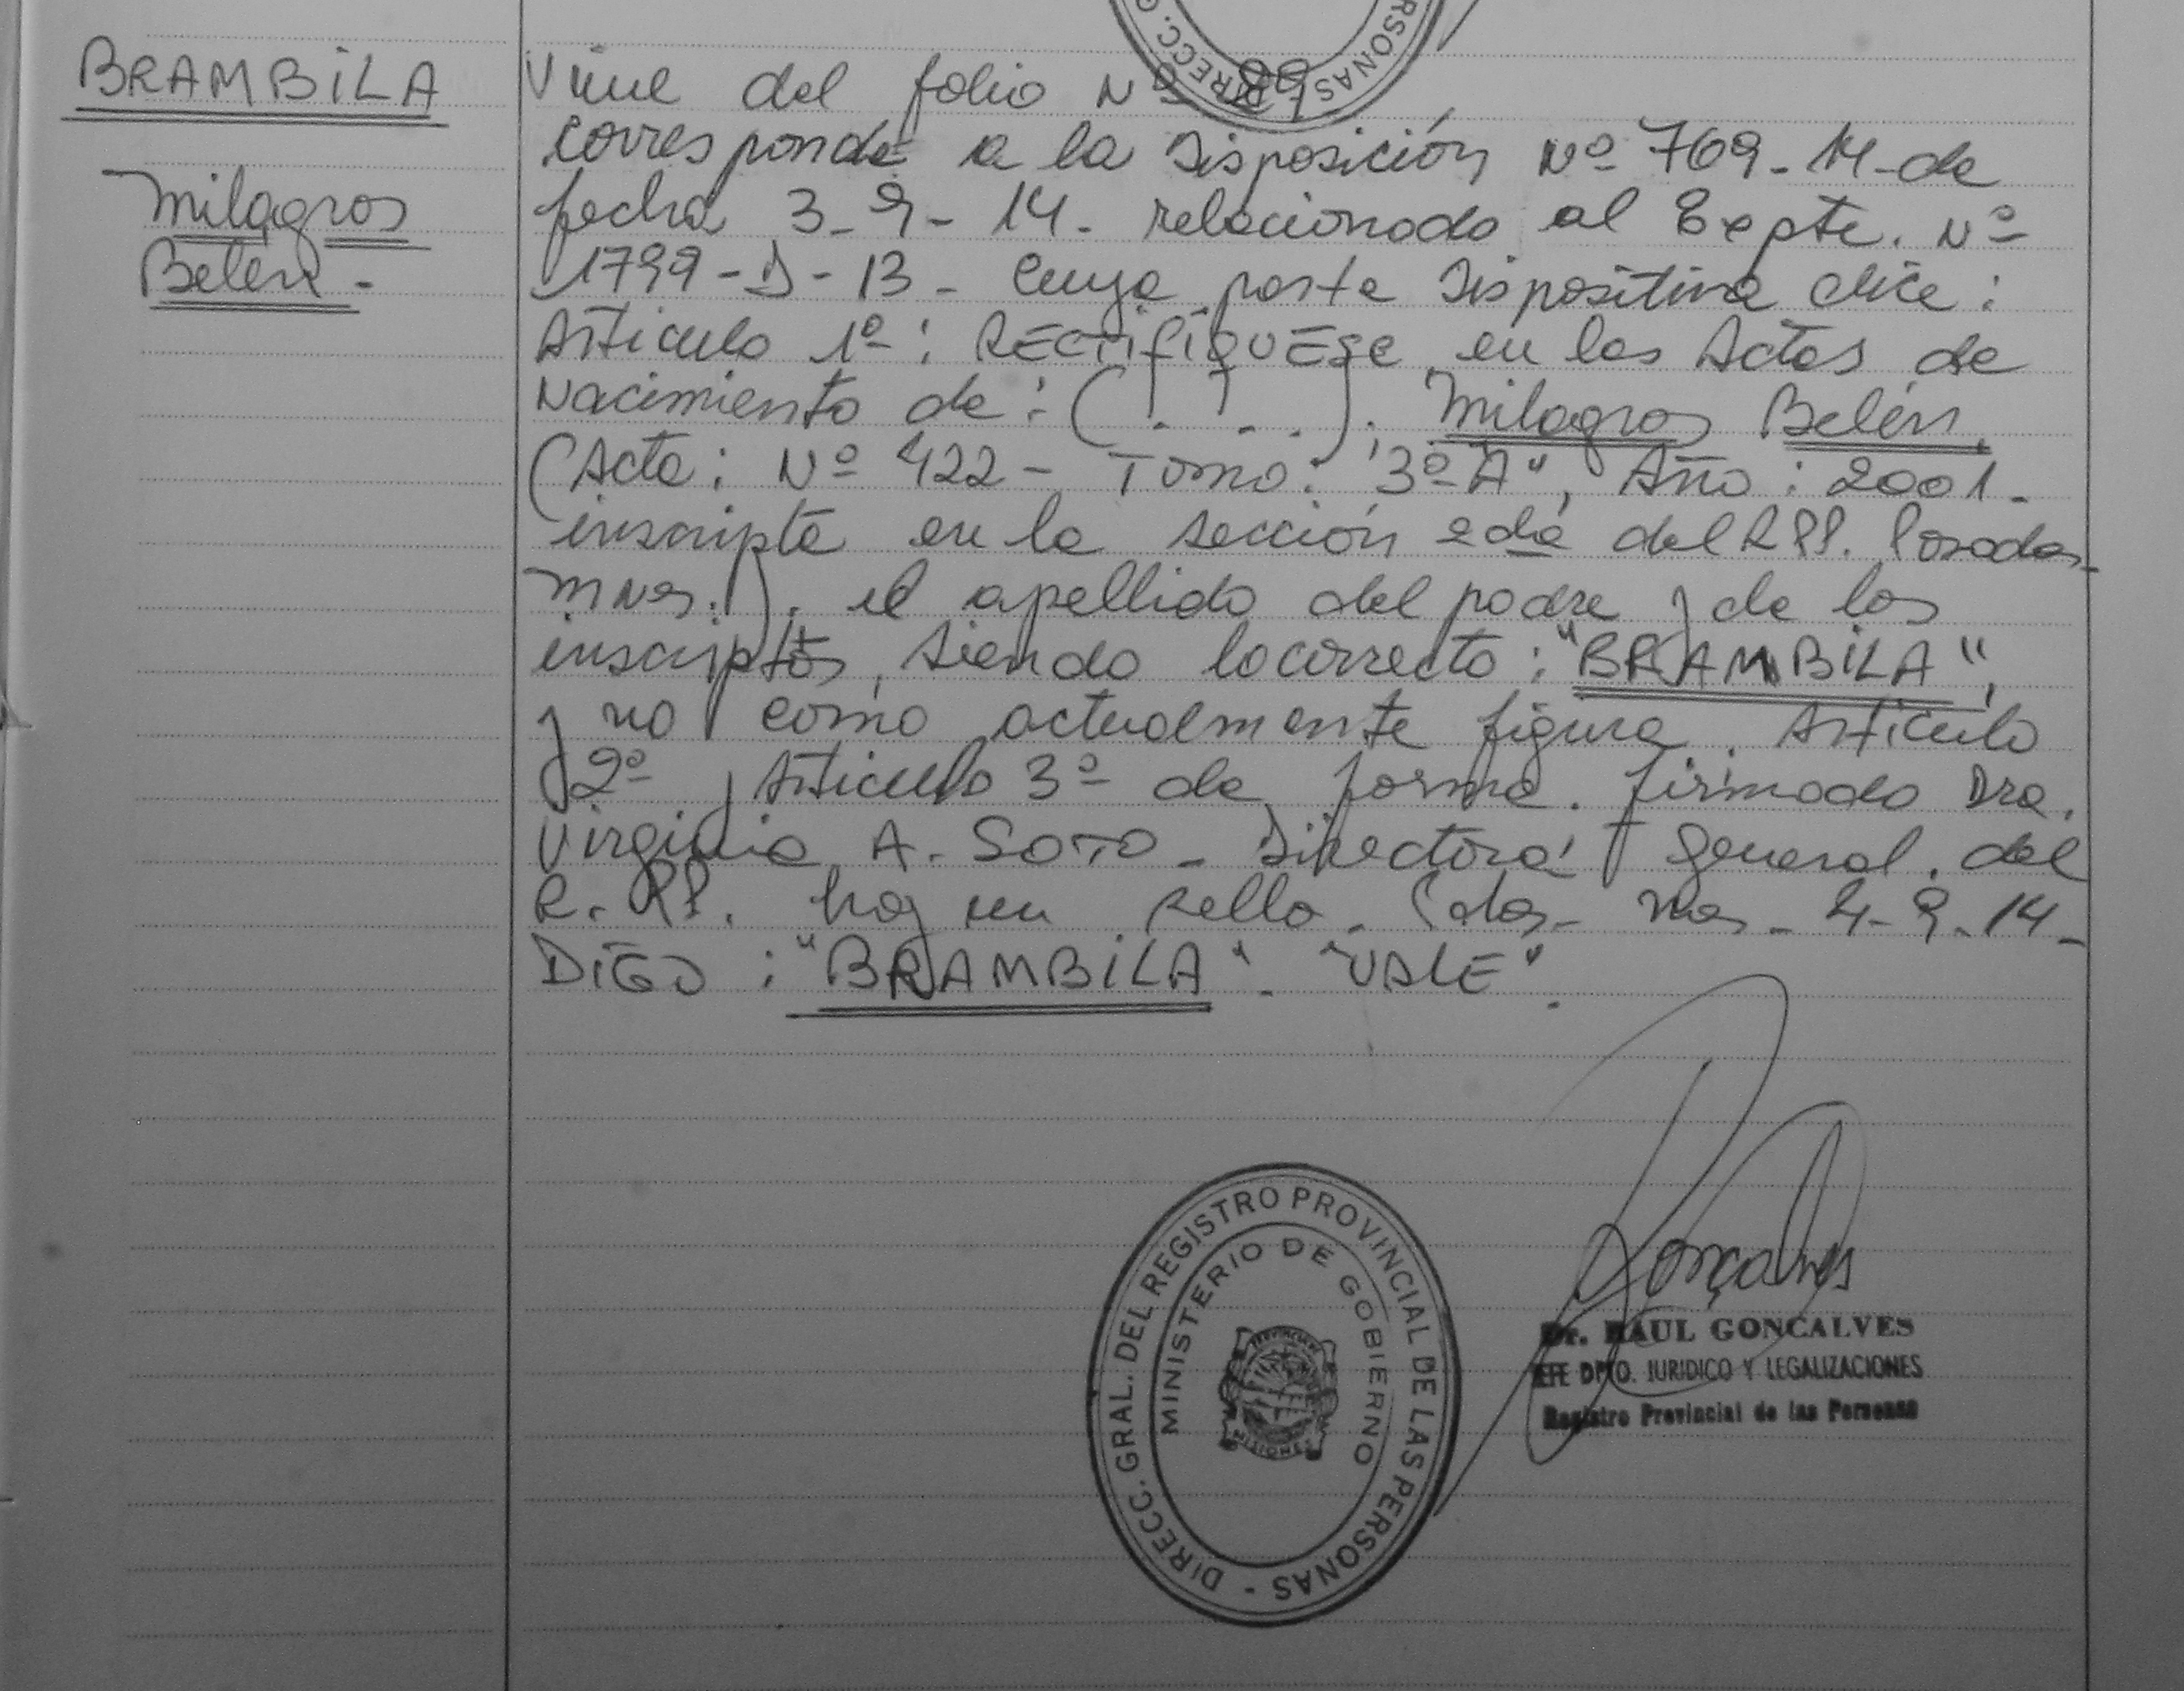 BRAMBILA
Milagros
Belén -
Viene del folio Nº 89
corresponde a la Disposición Nº 769-14-de
fecha 3-9-14. relacionado al Expte. Nº
1799-D-13- Cuya parte Dispositiva dice:
Articulo 1º: RECTIFIQUESE en las Actas de
Nacimiento de: (...). Milagros Belén.
(Acta: Nº 422- Tomo: "3º A", Año: 2001.
inscripta en la sección 2da del RPP. Posadas
Mnes.). el apellido del padre y de los
inscriptos, siendo lo correcto: "BRAMBILA",
y no como actualmente figura. Articulo
2º y Articulo 3º de forma. firmado Dra.
Virginia A. SOTO - Directora General del
R.PP. hay un sello. Pdas- Mnes- 4-9-14-
DIGO: "BRAMBILA". "VALE".
DIRECC. GRAL. DEL REGISTRO PROVINCIAL DE LAS PERSONAS -
MINISTERIO DE GOBIERNO
MISIONES
Gonçalves
Dr. RAUL GONCALVES
JEFE DPTO. JURIDICO Y LEGALIZACIONES
Registro Provincial de las Personas